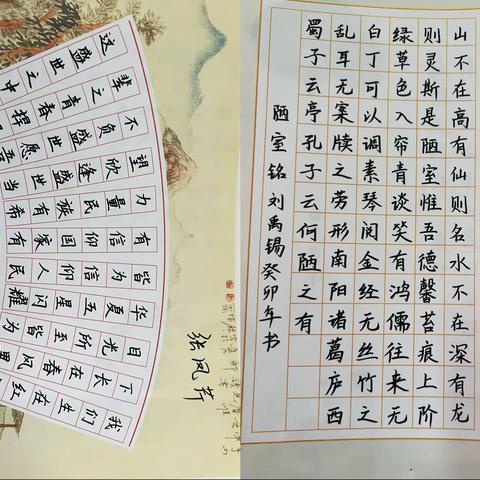 我们生在红
下长在春风里
目光所至皆为
华夏五星闪耀
皆为信仰人民
有信仰国家有
力量民族有希
望欣逢盛世当
不负盛世愿吾
辈之青春捍
这盛世之中
张凤芹
山不在高有仙则名水不在深有龙
则灵斯是陋室惟吾德馨苔痕上阶
绿草色入帘青谈笑有鸿儒往来无
白丁可以调素琴阅金经无丝竹之
乱耳无案牍之劳形南阳诸葛庐西
蜀子云亭孔子云何陋之有
陋室铭刘禹锡癸卯年书